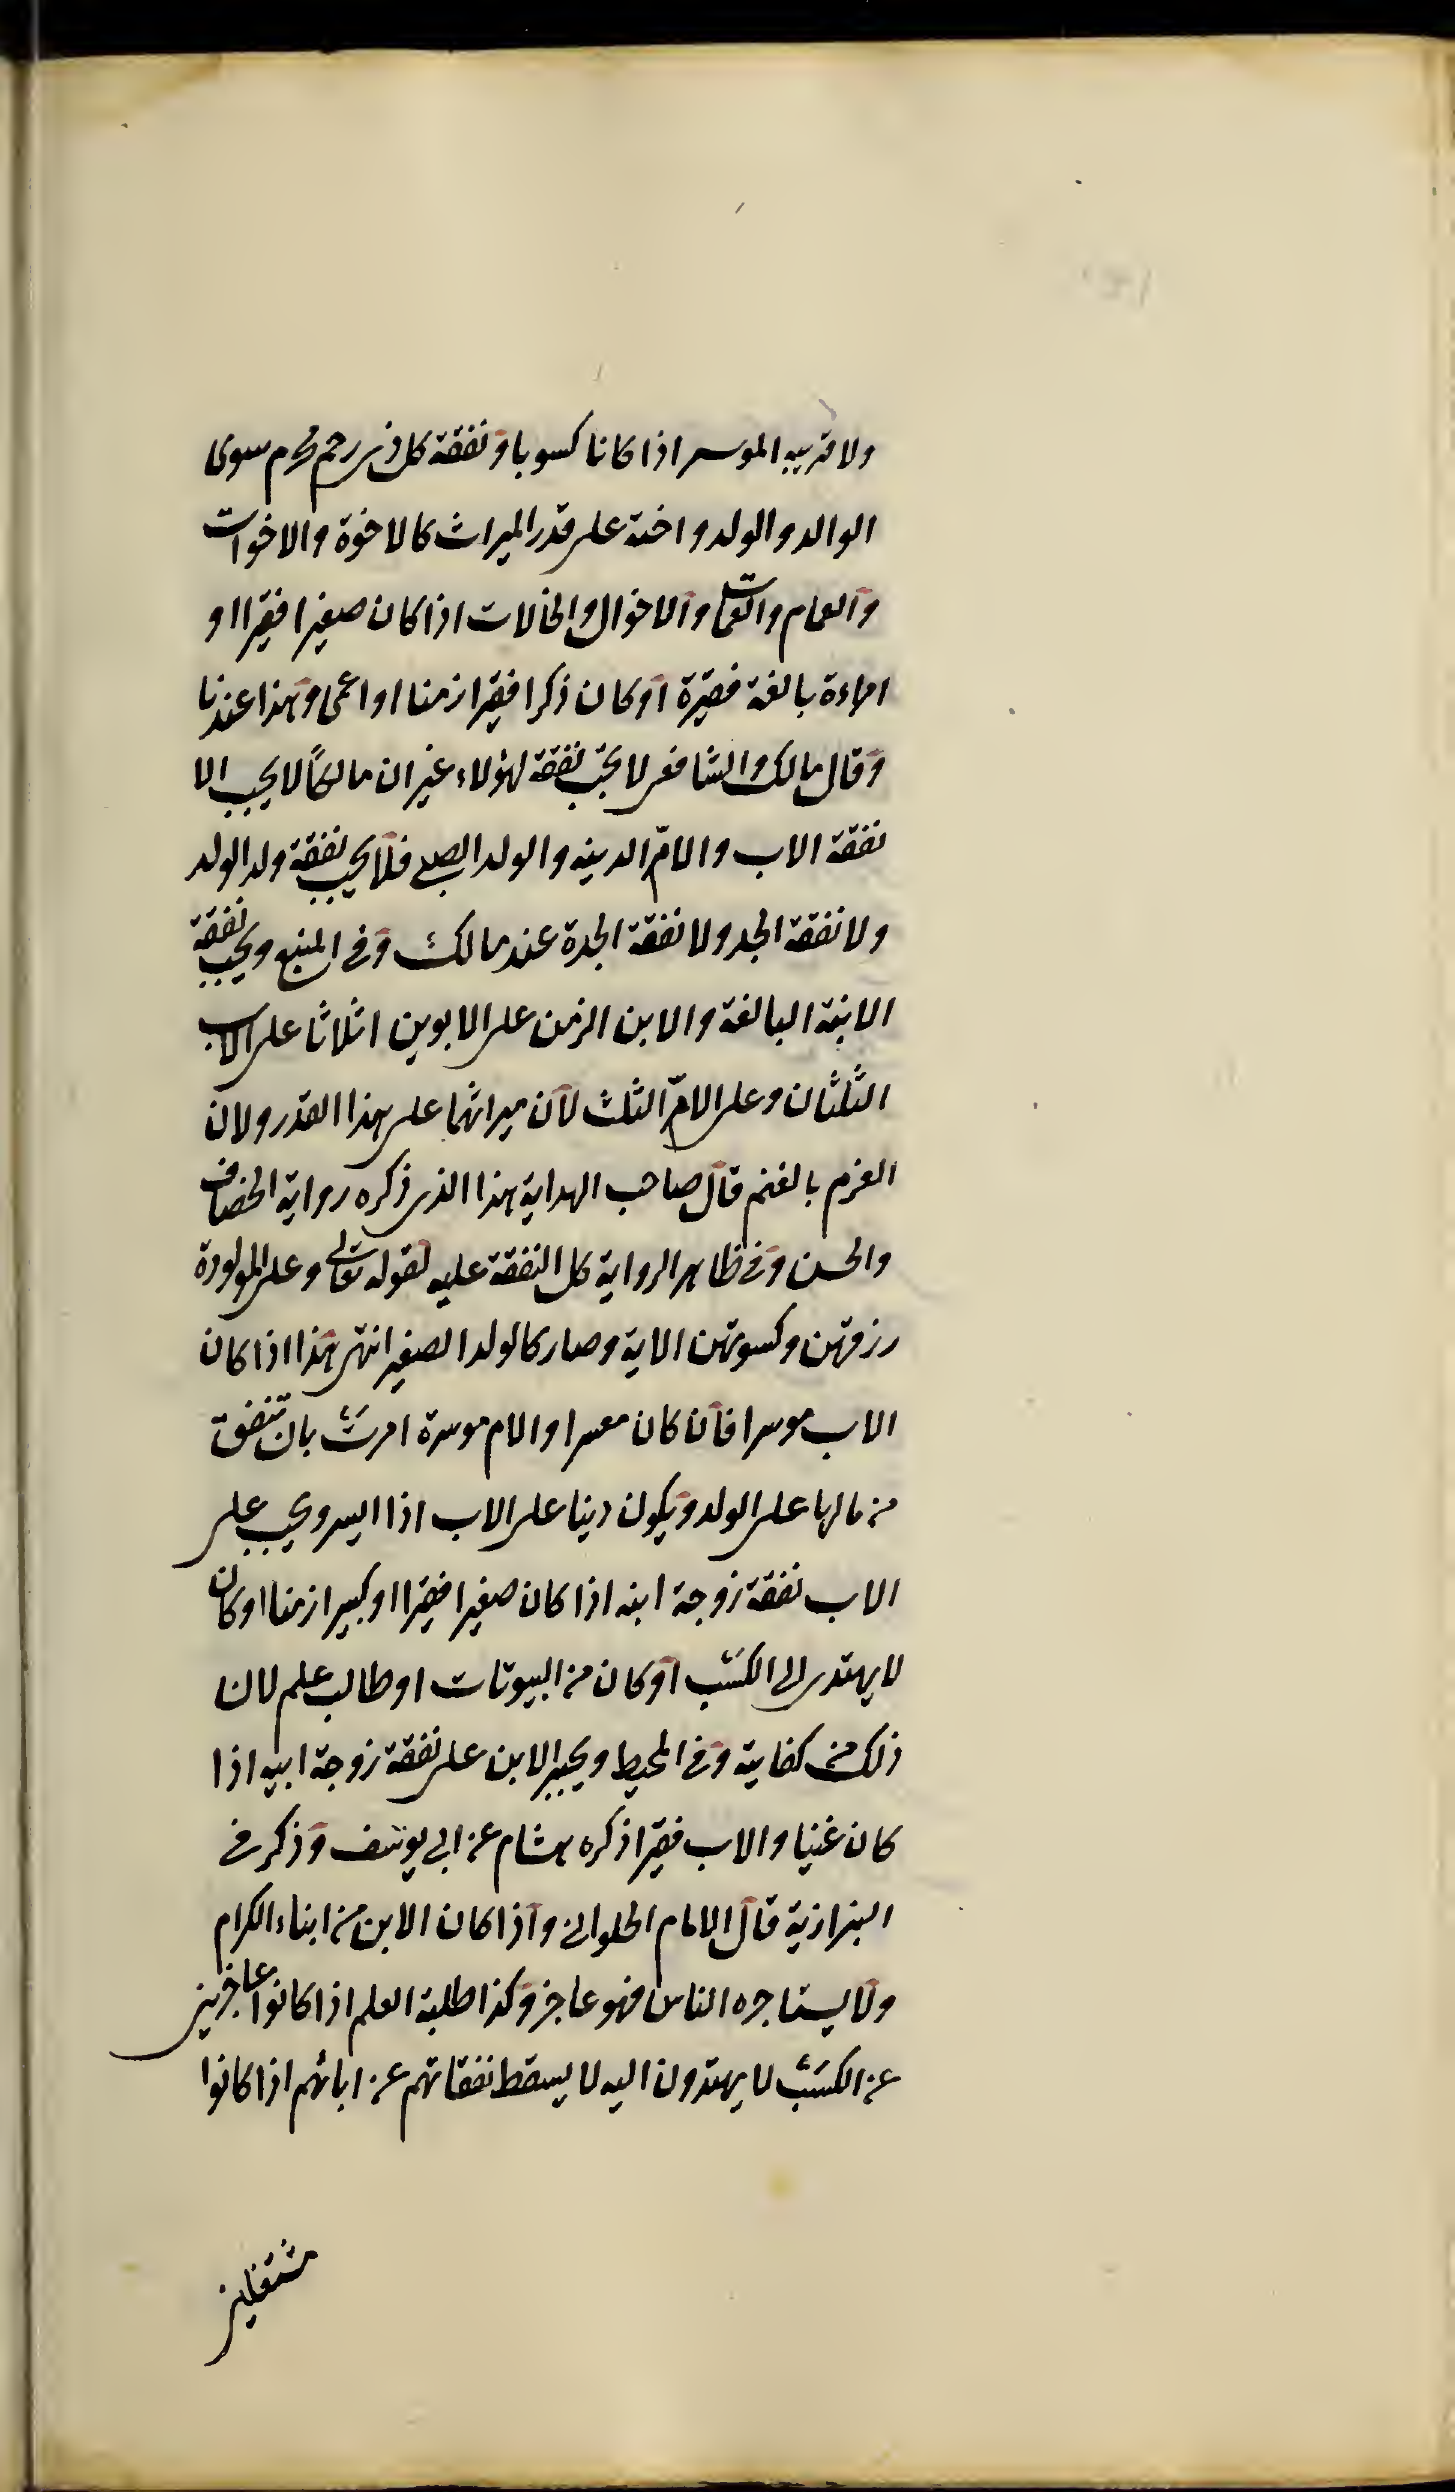 ولا قريبه الموسر اذا كانا كسوبا ونفقة كل ذى رحم محرم سوى
الوالد والولد واخته على قدر الميراث كالاخوة والاخوات
والعمام والعمات والاخوال والخالات اذا كان صغيرا فقيرا او
امراءة بالغة فقيرة او كان ذكرا فقيرا زمنا او اعمى وهذا عندنا
وقال مالك والشافعى لا يجب نفقة لهؤلاء غير ان مالكا لا يجب الا
نفقة الاب والام الدينه والولد الصلبى فلا يجب نفقة ولد الولد
ولا نفقة الجد ولا نفقة الجدة عند مالك وفى المنبع ويجب نفقة
الابنة البالغة والابن الزمن على الابوين اثلاثا على الاب
الثلثان وعلى الام الثلث لان ميراثهما على هذا القدر ولان
الغرم بالغنم قال صاحب الهداية هذا الذى ذكره رواية الخصاف
والحسن وفى ظاهر الرواية كل النفقة عليه لقوله تعالى وعلى المولود له
رزقهن وكسوتهن الاية وصار كالولد الصغير انتهى هذا اذا كان
الاب موسرا فان كان معسرا والام موسرة امرت بان تنفق
من مالها على الولد ويكون دينا على الاب اذا ايسر ويجب على
الاب نفقة زوجة ابنه اذا كان صغيرا فقيرا او كبيرا زمنا او كان
لا يهتدى الى الكسب او كان من البيوتات او طالب علم لان
ذلك من كفاية وفى المحيط ويجبر الابن على نفقة زوجة ابيه اذا
كان غنيا والاب فقيرا ذكره هشام عن ابى يوسف وذكر فى
البزازية قال الامام الحلوانى واذا كان الابن من ابناء الكرام
ولا يستاجره الناس فهو عاجز وكذا طلبة العلم اذا كانوا عاجزين
عن الكسب لا يهتدون اليه لا يسقط نفقاتهم عن ابائهم اذا كانوا
مشتغلين